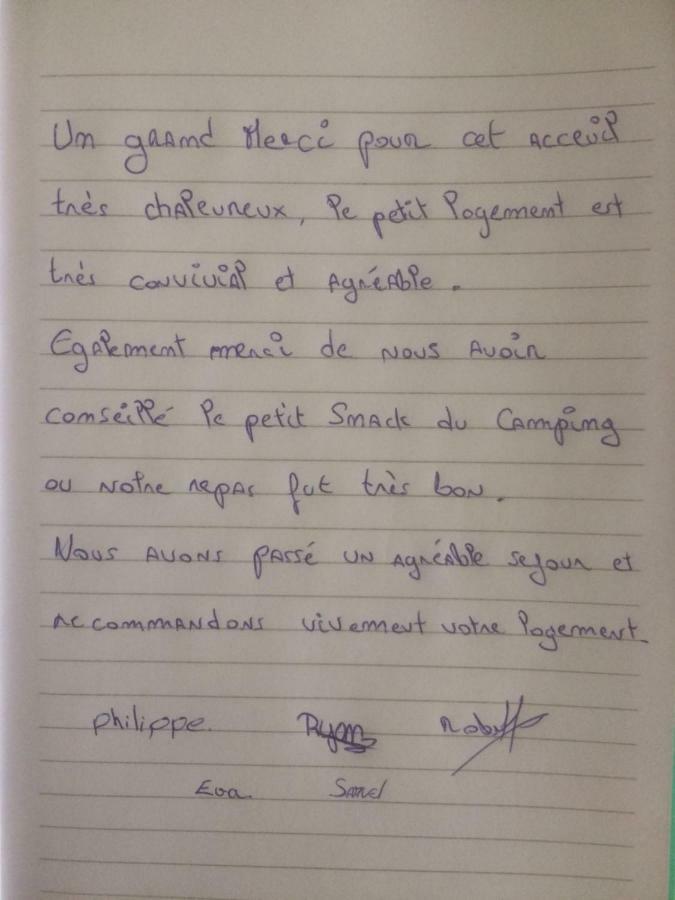 Un grand Merci pour cet acceuil
très chaleureux, le petit logement est
très convivial et agréable.
Egalement merci de nous avoir
conseillé le petit Smack du Camping
ou notre repas fut très bon.
Nous avons passé un agréable sejour et
recommandons vivement votre logement.
philippe. Ryan
Eva.